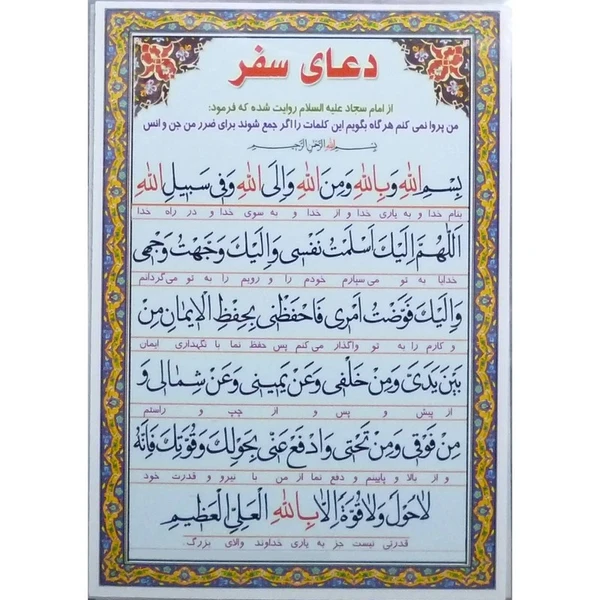 دعای سفر
از امام سجاد علیه السلام روایت شده که فرمود:
من پروا نمی کنم هرگاه بگویم این کلمات را اگر جمع شوند برای ضرر من جن و انس
بسم الله الرحمن الرحیم
بِسْمِ اللهِ وَبِاللهِ وَمِنَ اللهِ وَاِلَی اللهِ وَفی سَبیلِ اللهِ
بنام خدا و به یاری خدا و از خدا و به سوی خدا و در راه خدا
اَللّهُمَّ اِلَیْكَ اَسْلَمْتُ نَفْسی وَاِلَیْكَ وَجَّهْتُ وَجْهی
خدایا به تو می سپارم خودم را و رویم را به تو می گردانم
وَاِلَیْكَ فَوَّضْتُ اَمْری فَاحْفَظْنی بِحِفْظِ الْاِیمانِ مِنْ
و کارم را به تو واگذار می کنم پس حفظ نما با نگهداری ایمان
بَیْنِ یَدَیَّ وَمِنْ خَلْفی وَعَنْ یَمینی وَعَنْ شِمالی وَ
از پیش و پس و از چپ و راستم
مِنْ فَوْقی وَمِنْ تَحْتی وَادْفَعْ عَنّی بِحَوْلِكَ وَقُوَّتِكَ فَاِنَّهُ
و از بالا و پایینم و دفع نما از من با نیرو و قدرت خود
لاحَوْلَ وَلاقُوَّةَ اِلاّ بِاللهِ الْعَلِیِّ الْعَظیمِ
قدرتی نیست جز به یاری خداوند والای بزرگ